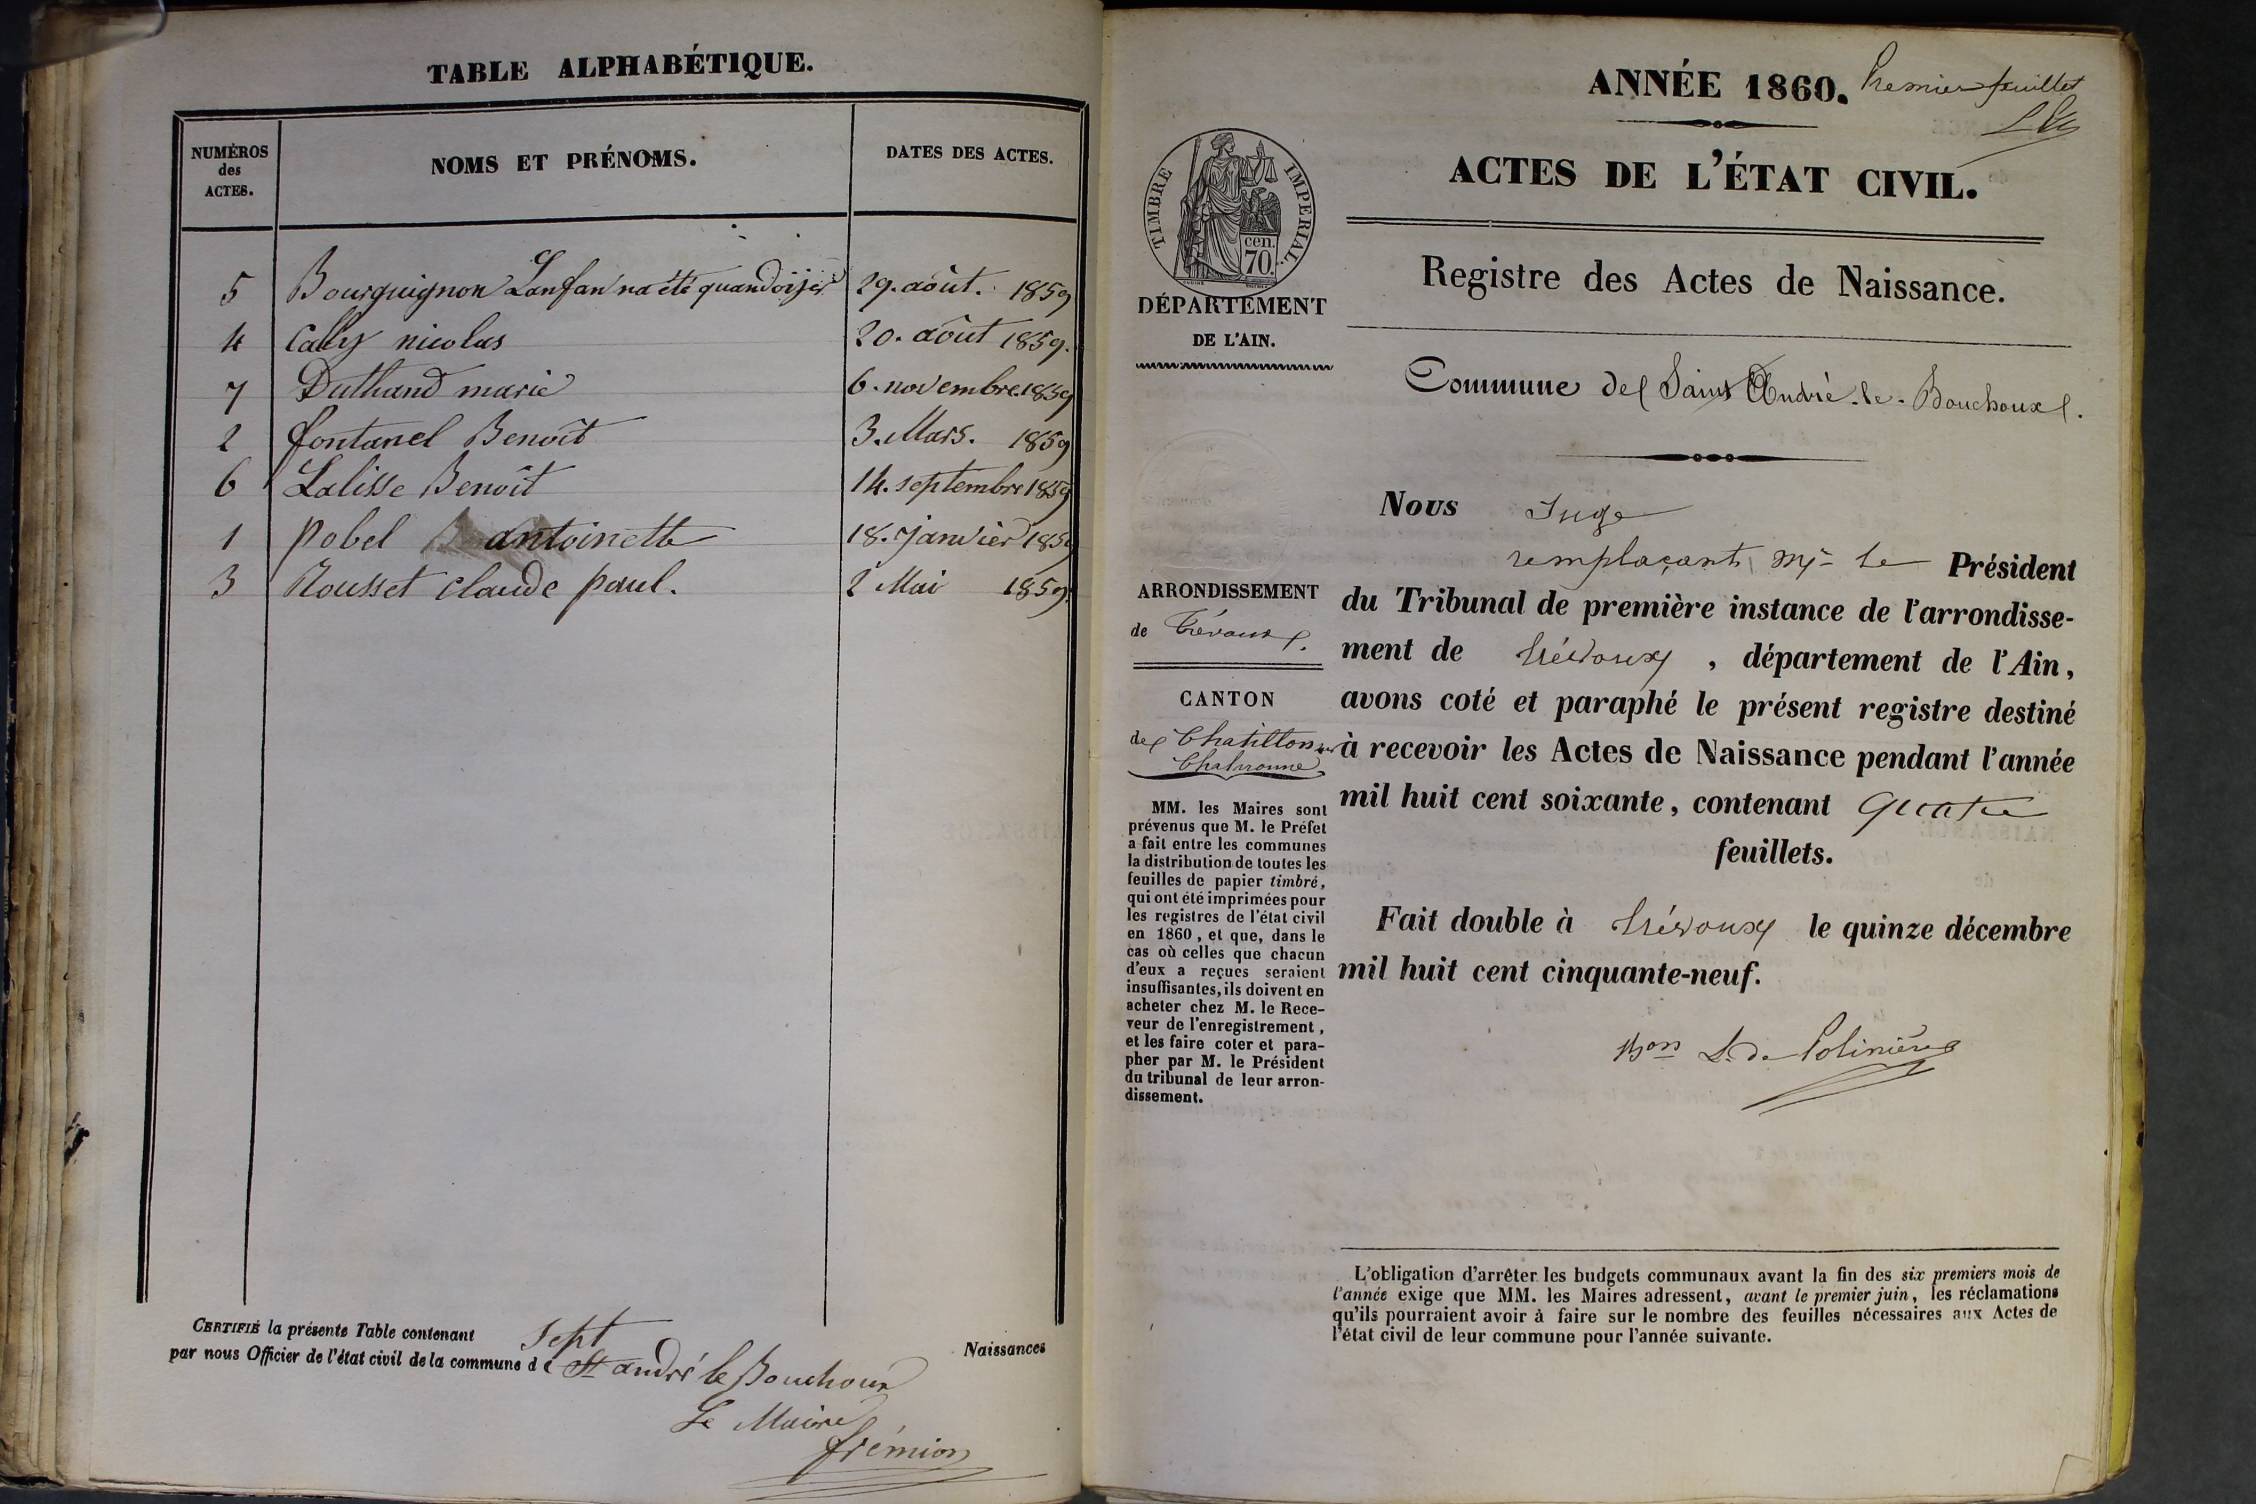 TABLE ALPHABÉTIQUE.
NUMÉROS
des
ACTES.
NOMS ET PRÉNOMS.
DATES DES ACTES.
5 Bourguignon Lanfan na été quandoijer 29. août. 1859
4 Caly nicolas 20. août 1859.
7 Duthand marie 6. novembre 1859
2 fontanel Benoît 3. Mars. 1859
6 Lalisse Benoît 14. septembre 1859
1 pobel antoinette 18. janvier 1859
3 Rousset claude paul. 2 Mai 1859.
CERTIFIÉ la présente Table contenant Sept Naissances
par nous Officier de l'état civil de la commune de St andré le Bouchoux
Le Maire
frémion
ANNÉE 1860. Premier feuillet
ACTES DE L'ÉTAT CIVIL.
TIMBRE IMPERIAL.
cen.
70.
DÉPARTEMENT
DE L'AIN.
Registre des Actes de Naissance.
Commune de Saint André-le-Bouchoux.
ARRONDISSEMENT
de Trévoux.
CANTON
de Chatillon sur
Chalaronne
MM. les Maires sont
prévenus que M. le Préfet
a fait entre les communes
la distribution de toutes les
feuilles de papier timbré,
qui ont été imprimées pour
les registres de l'état civil
en 1860, et que, dans le
cas où celles que chacun
d'eux a reçues seraient
insuffisantes, ils doivent en
acheter chez M. le Rece-
veur de l'enregistrement,
et les faire coter et para-
pher par M. le Président
du tribunal de leur arron-
dissement.
Nous Juge
remplaçant Mr le Président
du Tribunal de première instance de l'arrondisse-
ment de Trévoux, département de l'Ain,
avons coté et paraphé le présent registre destiné
à recevoir les Actes de Naissance pendant l'année
mil huit cent soixante, contenant quatre
feuillets.
Fait double à Trévoux le quinze décembre
mil huit cent cinquante-neuf.
Bon L. de Polinière
L'obligation d'arrêter les budgets communaux avant la fin des six premiers mois de
l'année exige que MM. les Maires adressent, avant le premier juin, les réclamations
qu'ils pourraient avoir à faire sur le nombre des feuilles nécessaires aux Actes de
l'état civil de leur commune pour l'année suivante.